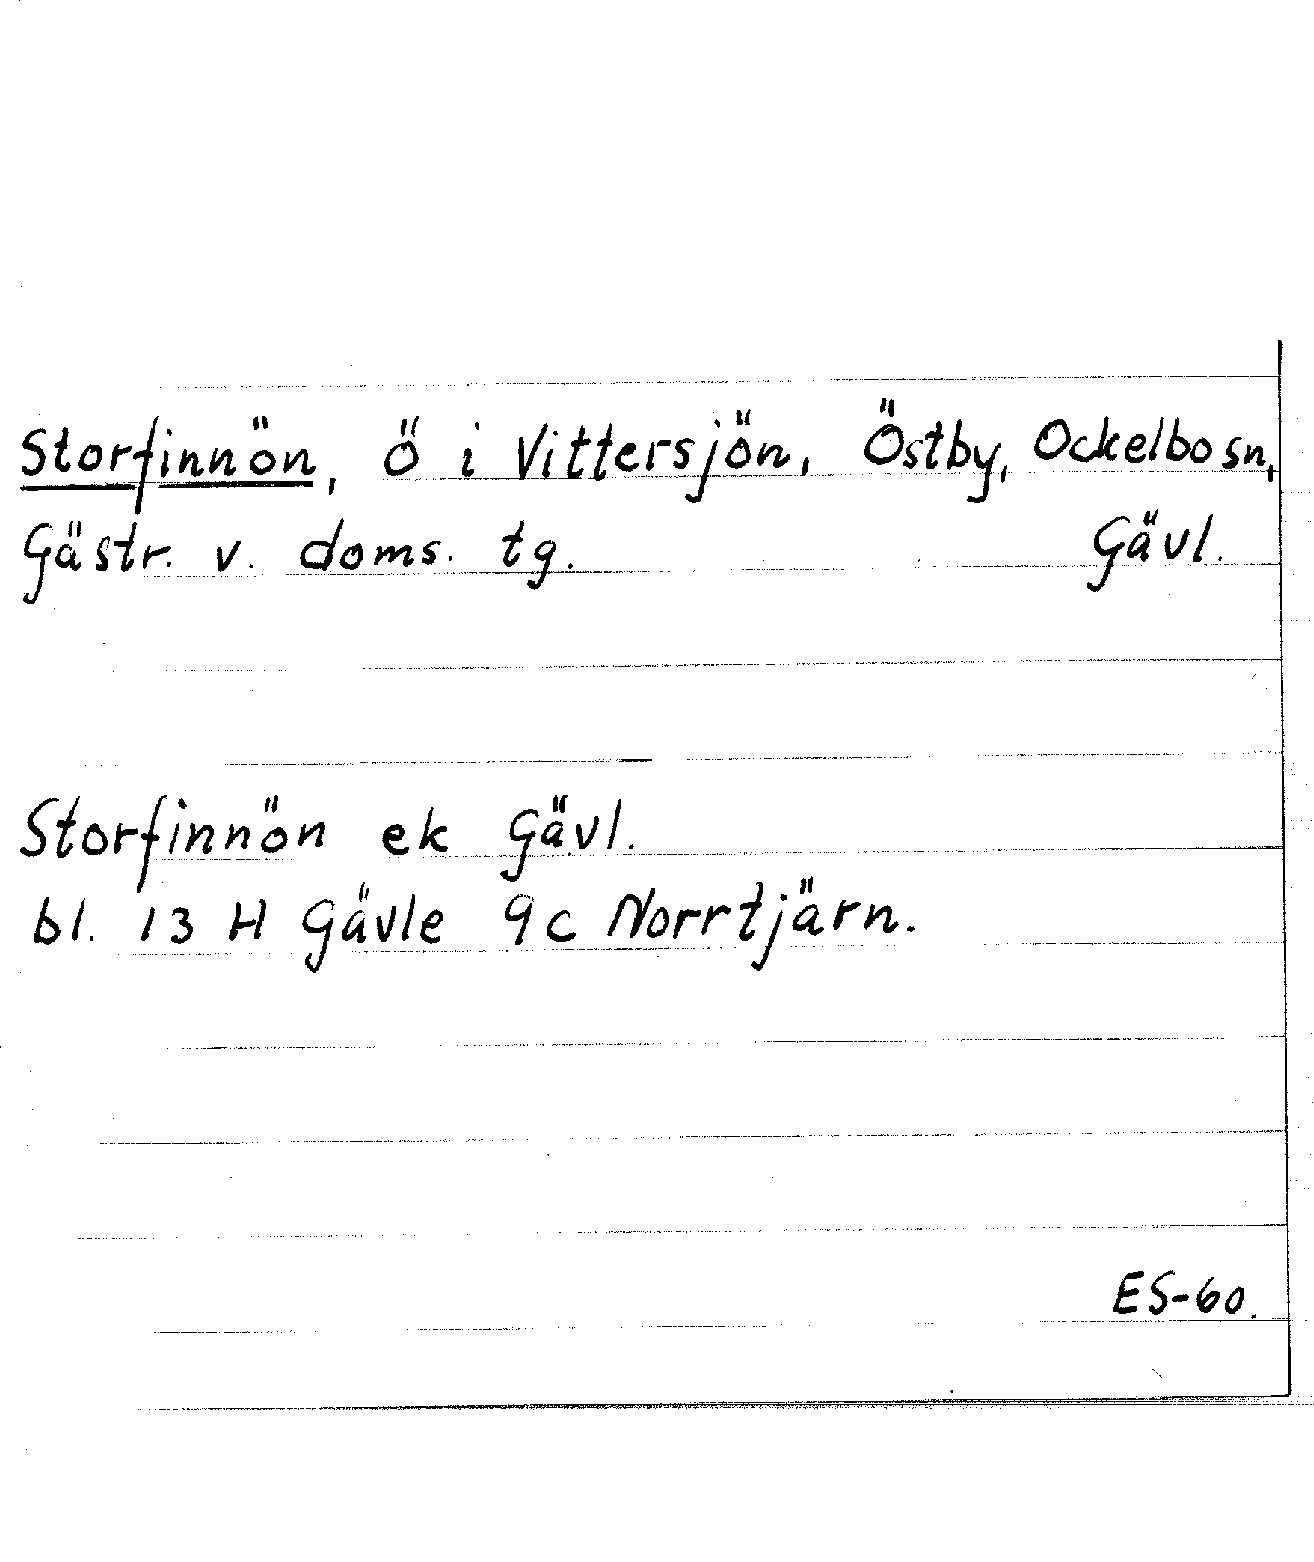 Storfinnön, ö i Vittersjön, Östby, Ockelbo sn,
Gästr. v. doms. tg. Gävl.
Storfinnön ek Gävl.
bl. 13 H Gävle 9c Norrtjärn.
ES-60.